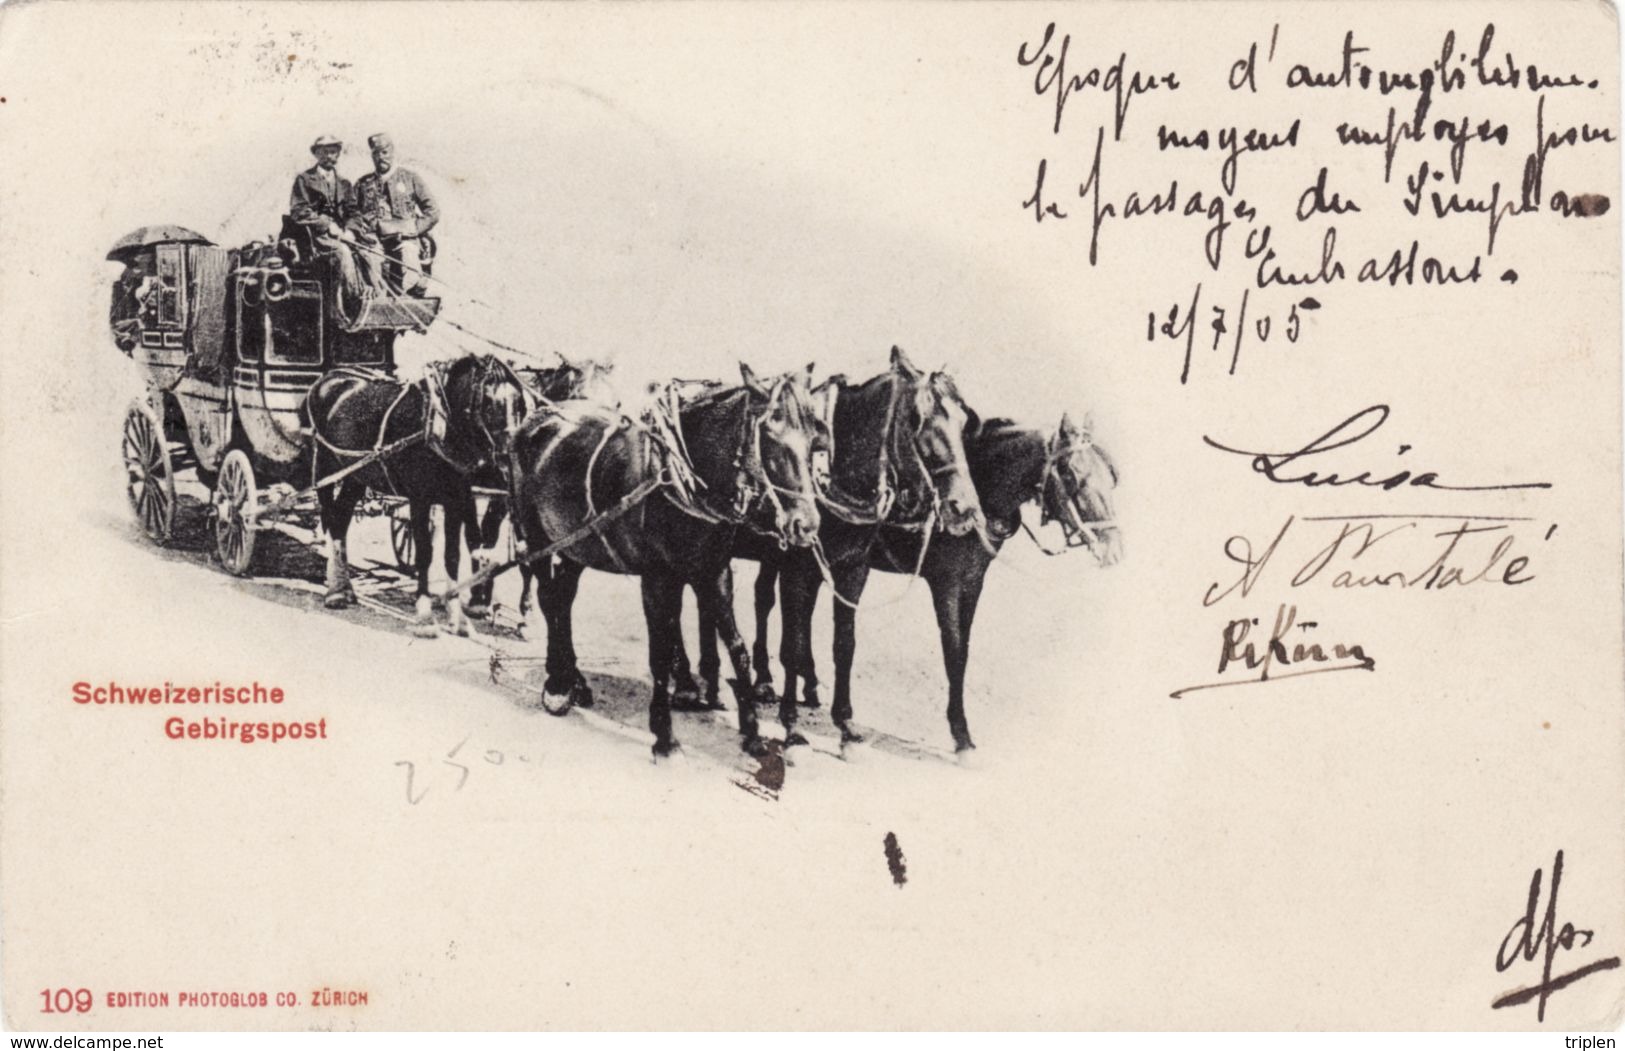 Epoque d'automobilisme.
moyens employés pour
le passage du Simplon
Embrassons.
12/7/05
Luisa
A
Rikūm
Schweizerische
Gebirgspost
250
109 EDITION PHOTOGLOB CO. ZÜRICH
www.delcampe.net
triplen